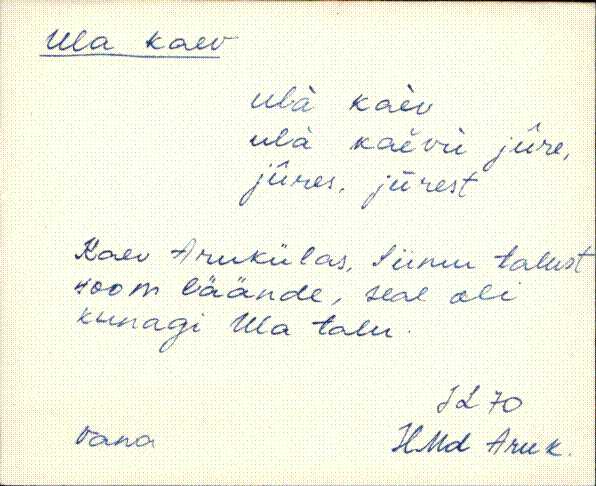 Ula kaev
ulà kàev
ulà kaèvù jûre,
jûres, jûrest
Kaev Arukülas, Siimu talust
400 m läände, seal oli
kunagi Ula talu.
JL 70
vana
HMd Aruk.